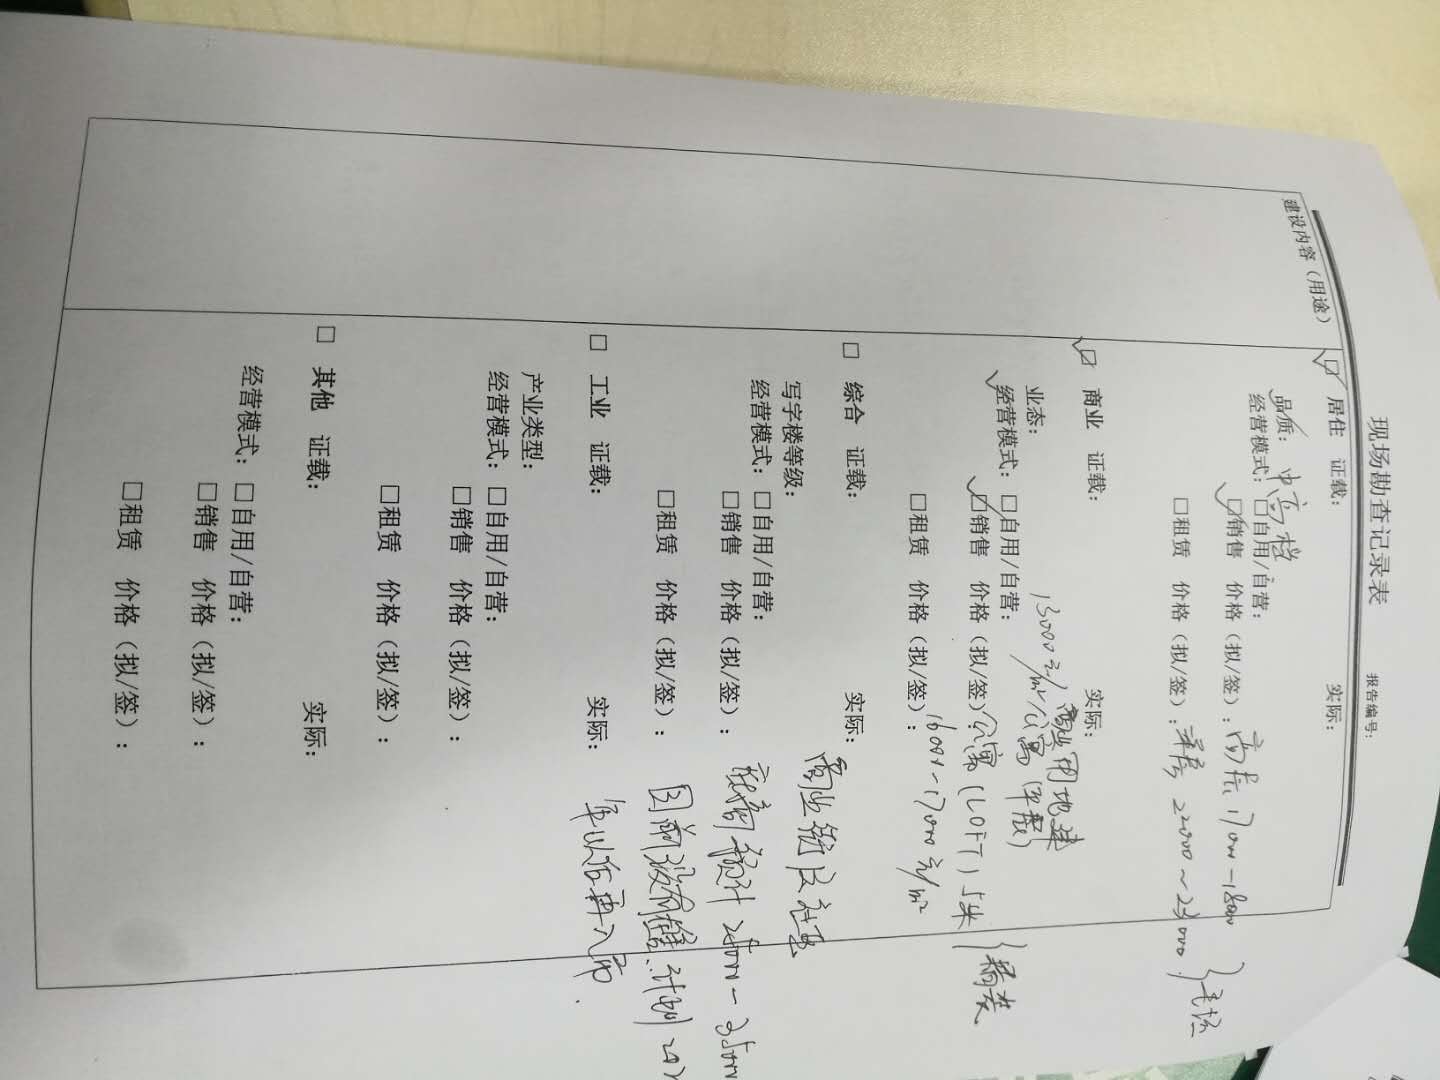 现场勘查记录表
报告编号:
建设内容（用途）
☑ 居住 证载: 实际:
品质: 中高档
经营模式: □自用/自营:
☑销售 价格（拟/签）: 高层 17000-18000
□租赁 价格（拟/签）: 洋房 22000~23000 } 毛坯
☑ 商业 证载: 实际: 商业用地建
业态: 13000元/㎡ 公寓（平层）
经营模式: □自用/自营:
☑销售 价格（拟/签）: 公寓（LOFT）5米 } 精装
□租赁 价格（拟/签）: 16000-17000元/㎡
□ 综合 证载: 实际:
写字楼等级: 商业街
经营模式: □自用/自营:
□销售 价格（拟/签）: 底商 预计
□租赁 价格（拟/签）: 目前没有 计划
□ 工业 证载: 实际: 年以后再入市.
产业类型:
经营模式: □自用/自营:
□销售 价格（拟/签）:
□租赁 价格（拟/签）:
□ 其他 证载: 实际:
经营模式: □自用/自营:
□销售 价格（拟/签）:
□租赁 价格（拟/签）: